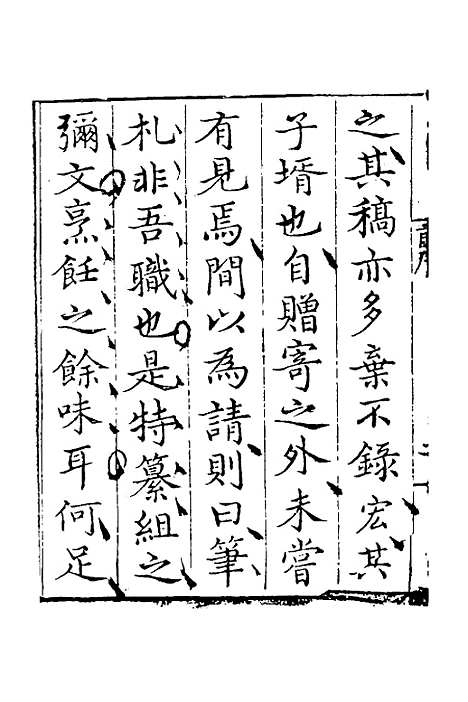 之其稿亦多棄不錄宏其
子壻也自贈寄之外未嘗
有見焉間以為請則曰筆
札非吾職也是特纂組之
彌文烹飪之餘味耳何足